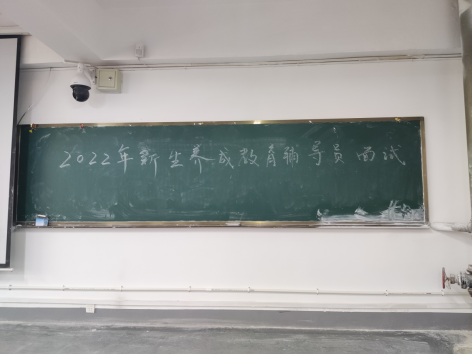 2022年新生养成教育辅导员面试